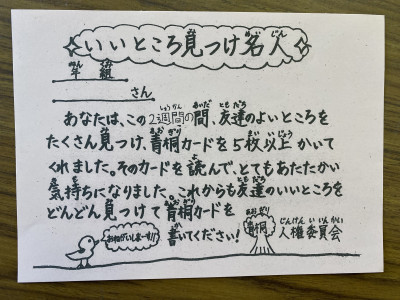 いいところ見つけ名人
年 組
さん
あなたは、この2週間の間、友達のよいところを
たくさん見つけ、青桐カードを5枚以上かいて
くれました。そのカードを読んで、とてもあたたかい
気持ちになりました。これからも友達のいいところを
どんどん見つけて青桐カードを
書いてください!
お願いしまーす!!
青桐
人権委員会